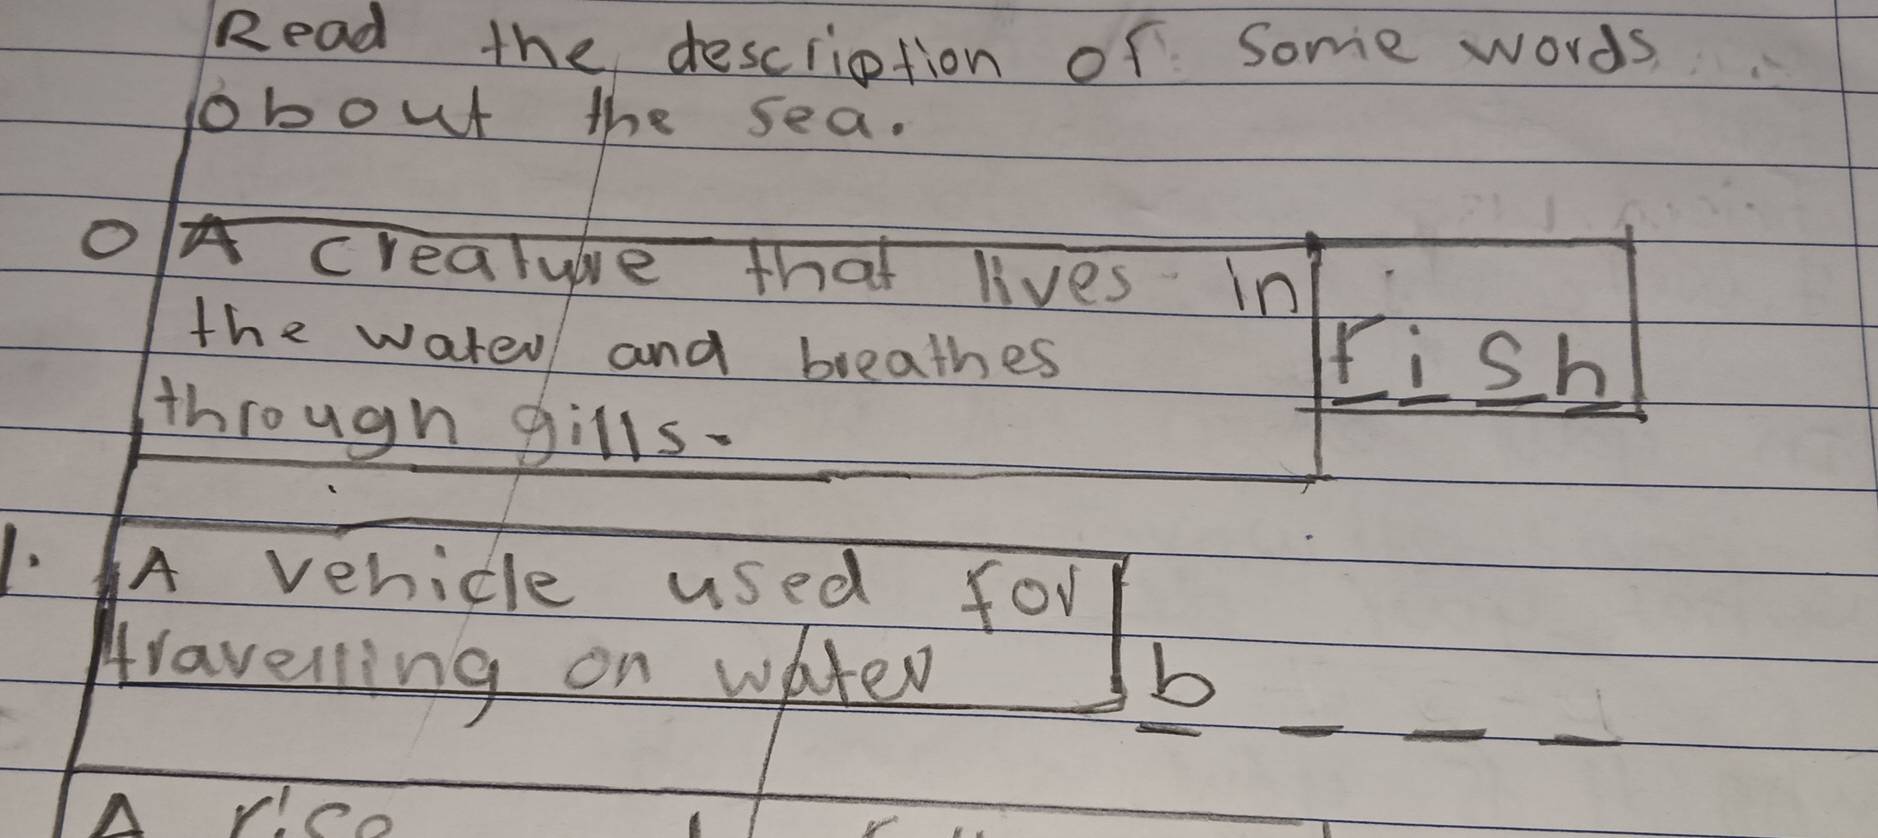 Read the description of some words
obout the sea.
0 A creature that lives in
the water and breathes
through gills.
fish
1. A vehicle used for
travelling on water
b _ _ _
A rise